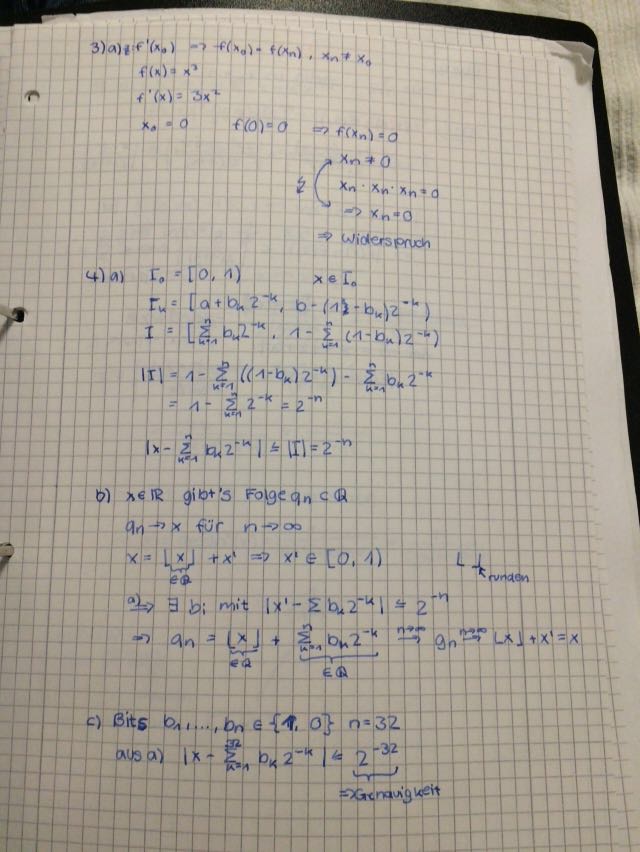 3) a) z.z. f'(x₀) ⇒ f(x₀) = f(xₙ), xₙ ≠ x₀
f(x) = x³
f'(x) = 3x²
x₀ = 0 f(0) = 0 ⇒ f(xₙ) = 0
xₙ ≠ 0
↯ xₙ · xₙ · xₙ = 0
⇒ xₙ = 0
⇒ Widerspruch
4) a) I₀ = [0, 1) x ∈ I₀
Iₖ = [a + bₖ 2⁻ᵏ, b - (1 - bₖ) 2⁻ᵏ)
I = [∑ₖ₌₁ⁿ bₖ 2⁻ᵏ, 1 - ∑ₖ₌₁ⁿ (1 - bₖ) 2⁻ᵏ)
|I| = 1 - ∑ₖ₌₁ⁿ ((1 - bₖ) 2⁻ᵏ) - ∑ₖ₌₁ⁿ bₖ 2⁻ᵏ
= 1 - ∑ₖ₌₁ⁿ 2⁻ᵏ = 2⁻ⁿ
|x - ∑ₖ₌₁ⁿ bₖ 2⁻ᵏ| ≤ |I| = 2⁻ⁿ
b) x ∈ ℝ gibt's Folge qₙ ⊂ ℚ
qₙ → x für n → ∞
x = ⌊x⌋ + x' ⇒ x' ∈ [0, 1) ⌊ ⌋
∈ ℚ runden
a) ⇒ ∃ bᵢ mit |x' - ∑ bₖ 2⁻ᵏ| ≤ 2⁻ⁿ
⇒ qₙ = ⌊x⌋ + ∑ₖ₌₁ⁿ bₖ 2⁻ᵏ n→∞ ⇒ qₙ n→∞ ⇒ ⌊x⌋ + x' = x
∈ ℚ ∈ ℚ
c) Bits b₁, ..., bₙ ∈ {1, 0} n = 32
aus a) |x - ∑ₖ₌₁³² bₖ 2⁻ᵏ| ≤ 2⁻³²
⇒ Genauigkeit